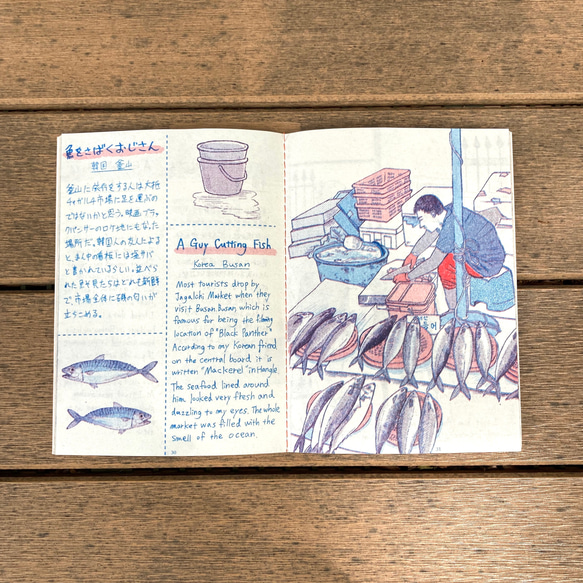 魚をさばくおじさん
韓国 釜山
釜山に旅行をする人は大抵
チャガルチ市場に足を運ぶの
ではないかと思う。映画ブラッ
クパンサーのロケ地にもなった
場所だ。韓国人の友人による
と、まん中の看板には塩サバ
と書かれているらしい。並べら
れた魚や貝たちはどれも新鮮
で、市場全体に磯の匂いが
立ちこめる。
A Guy Cutting Fish
Korea Busan
Most tourists drop by
Jagalchi Market when they
visit Busan. Busan, which is
famous for being the filming
location of "Black Panther"
According to my Korean friend
on the central board it is
written "Mackerel" in Hangle.
The seafood lined around
him, looked very fresh and
dazzling to my eyes. The whole
market was filled with the
smell of the ocean.
30